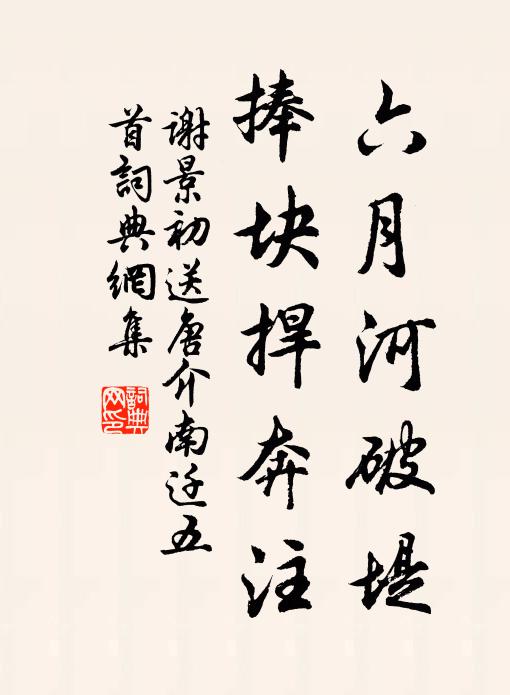 六月河破堤
捧块捍奔注
谢景初送唐介南迁五
首詞典網集
詞典
网印